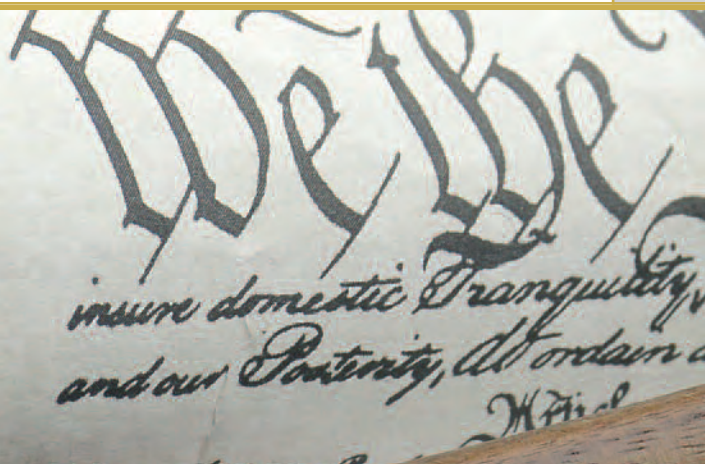 We the
insure domestic Tranquility,
and our Posterity, do ordain
Articl